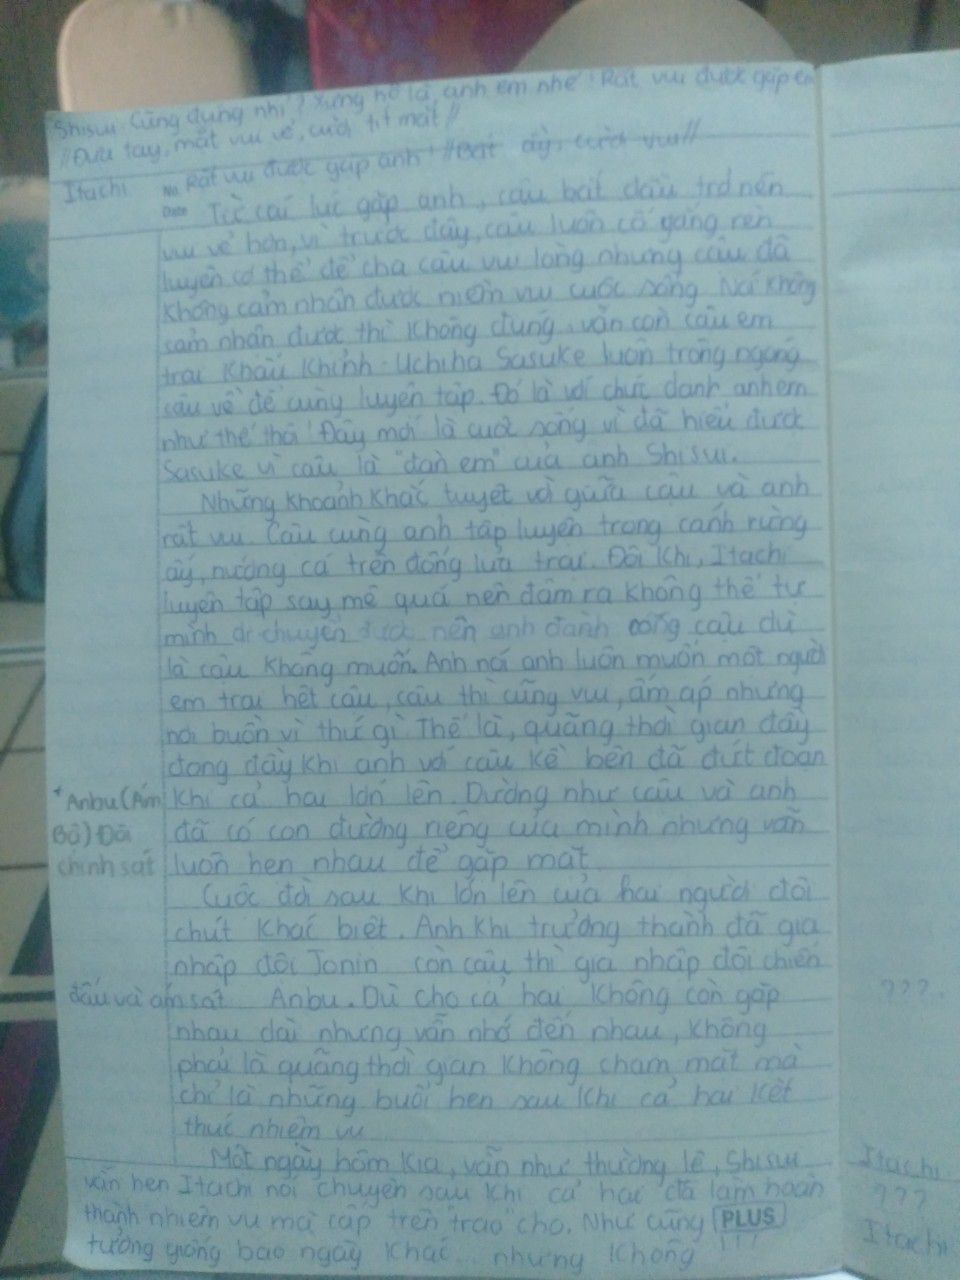 Shisui: Cũng đúng nhỉ? Xưng hô là anh em nhé! Rất vui được gặp em
//Đưa tay, mặt vui vẻ, cười tít mắt//
Itachi No. Rất vui được gặp anh! //Bắt ấy, cười vui//
Date Từ cái lúc gặp anh, cậu bắt đầu trở nên
vui vẻ hơn, vì trước đây, cậu luôn cố gắng rèn
luyện cơ thể để cha cậu vui lòng nhưng cậu đã
không cảm nhận được niềm vui cuộc sống. Nói không
cảm nhận được thì không đúng, vẫn còn cậu em
trai kháu khỉnh - Uchiha Sasuke luôn trông ngóng
cậu về để cùng luyện tập. Đó là với chức danh anh em
như thế thôi! Đây mới là cuộc sống vì đã hiểu được
Sasuke vì cậu là "đàn em" của anh Shisui.
Những khoảnh khắc tuyệt vời giữa cậu và anh
rất vui. Cậu cùng anh tập luyện trong cánh rừng
ấy, nướng cá trên đống lửa trại. Đôi khi, Itachi
luyện tập say mê quá nên đâm ra không thể tự
mình di chuyển được nên anh đành cõng cậu dù
là cậu không muốn. Anh nói anh luôn muốn một người
em trai hệt cậu, cậu thì cũng vui, ấm áp nhưng
nói buồn vì thứ gì. Thế là, quãng thời gian đầy
đong đầy khi anh với cậu kề bên đã đứt đoạn
* Anbu (Ám khi cả hai lớn lên. Dường như cậu và anh
Bộ) Đội đã có con đường riêng của mình nhưng vẫn
chinh sát luôn hẹn nhau để gặp mặt.
Cuộc đời sau khi lớn lên của hai người đôi
chút khác biệt. Anh khi trưởng thành đã gia
nhập đội Jonin còn cậu thì gia nhập đội chiến
đấu và ám sát Anbu. Dù cho cả hai không còn gặp
nhau dài nhưng vẫn nhớ đến nhau, không
phải là quãng thời gian không chạm mặt mà
chỉ là những buổi hẹn sau khi cả hai kết
thúc nhiệm vụ
Một ngày hôm kia, vẫn như thường lệ, Shisui
vẫn hẹn Itachi nói chuyện sau khi cả hai đã làm hoàn
thành nhiệm vụ mà cấp trên "trao" cho. Như cũng PLUS
tưởng giống bao ngày khác... nhưng không
???
Itachi
???
Itachi